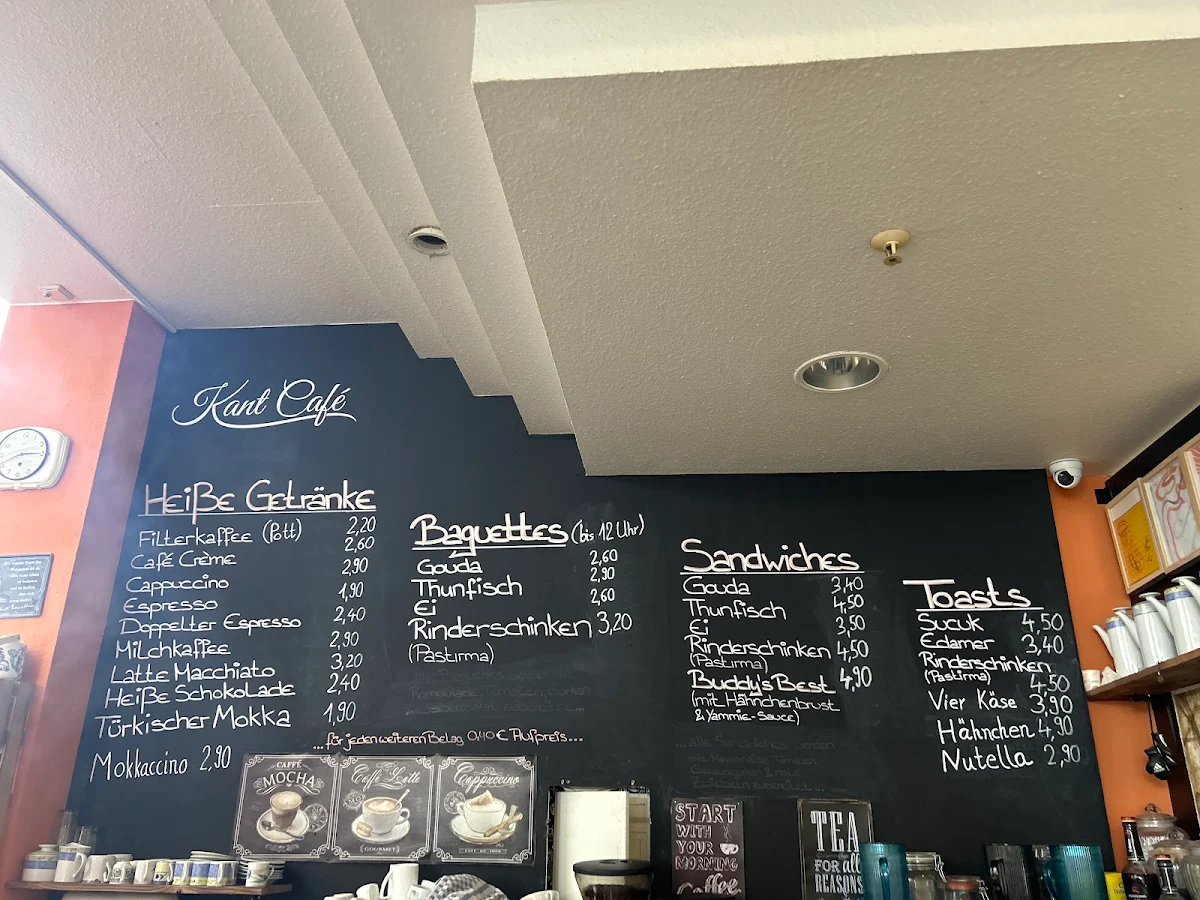 Kant Café
Heiße Getränke
Filterkaffee (Pott) 2,20
Café Crème 2,60
Cappuccino 2,90
Espresso 1,90
Doppelter Espresso 2,40
Milchkaffee 2,90
Latte Macchiato 3,20
Heiße Schokolade 2,40
Türkischer Mokka 1,90
Mokkaccino 2,90
Baguettes (bis 12 Uhr)
Gouda 2,60
Thunfisch 2,90
Ei 2,60
Rinderschinken 3,20
(Pastırma)
...für jeden weiteren Belag 0,40 € Aufpreis...
Sandwiches
Gouda 3,40
Thunfisch 4,50
Ei 3,50
Rinderschinken 4,50
(Pastırma)
Buddy's Best 4,90
(mit Hähnchenbrust
& Yammie-Sauce)
...alle Sandwiches werden
Toasts
Sucuk 4,50
Edamer 3,40
Rinderschinken
(Pastırma) 4,50
Vier Käse 3,90
Hähnchen 4,90
Nutella 2,90
CAFFÉ
MOCHA
Caffé Latte
GOURMET
Cappuccino
START
WITH
YOUR
MORNING
Coffee
TEA
FOR all
REASONS